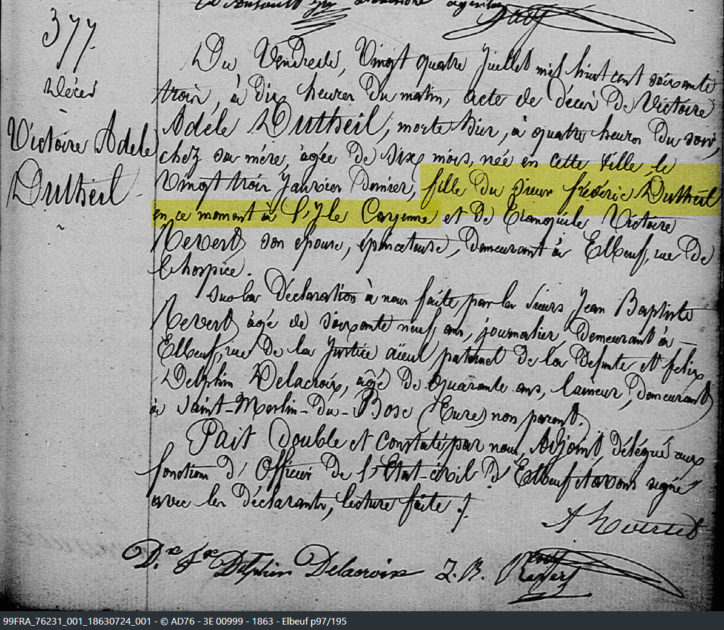 377
Décès
Victoire Adèle
Dutheil
Du Vendredi, Vingt quatre Juillet mil huit cent soixante
trois, à dix heures du matin, acte de décès de Victoire
Adèle Dutheil, morte hier, à quatre heures du soir,
chez sa mère, âgée de six mois, née en cette ville, le
Vingt trois Janvier dernier, fille du sieur frédéric Dutheil
en ce moment à l'Ile Cayenne et de Victoire
Revert son épouse, épinceteuse, demeurant à Elbeuf, rue de
l'hospice.
Sur la Déclaration à nous faite par les sieurs Jean Baptiste
Revert âgé de soixante neuf ans, journalier, demeurant à
Elbeuf, rue de la Justice aïeul paternel de la défunte, et felix
Delphin Delacroix, âgé de quarante ans, laineur, demeurant
à Saint-Meslin-Du-Bosc (Eure) non parent.
Fait double et constaté par nous, Adjoint délégué aux
fonction d'Officier de l'Etat-civil d'Elbeuf et avons signé
avec les déclarants, lecture faite ./.
Delphin Delacroix J. B. Revert
99FRA_76231_001_18630724_001 - © AD76 - 3E 00999 - 1863 - Elbeuf p97/195